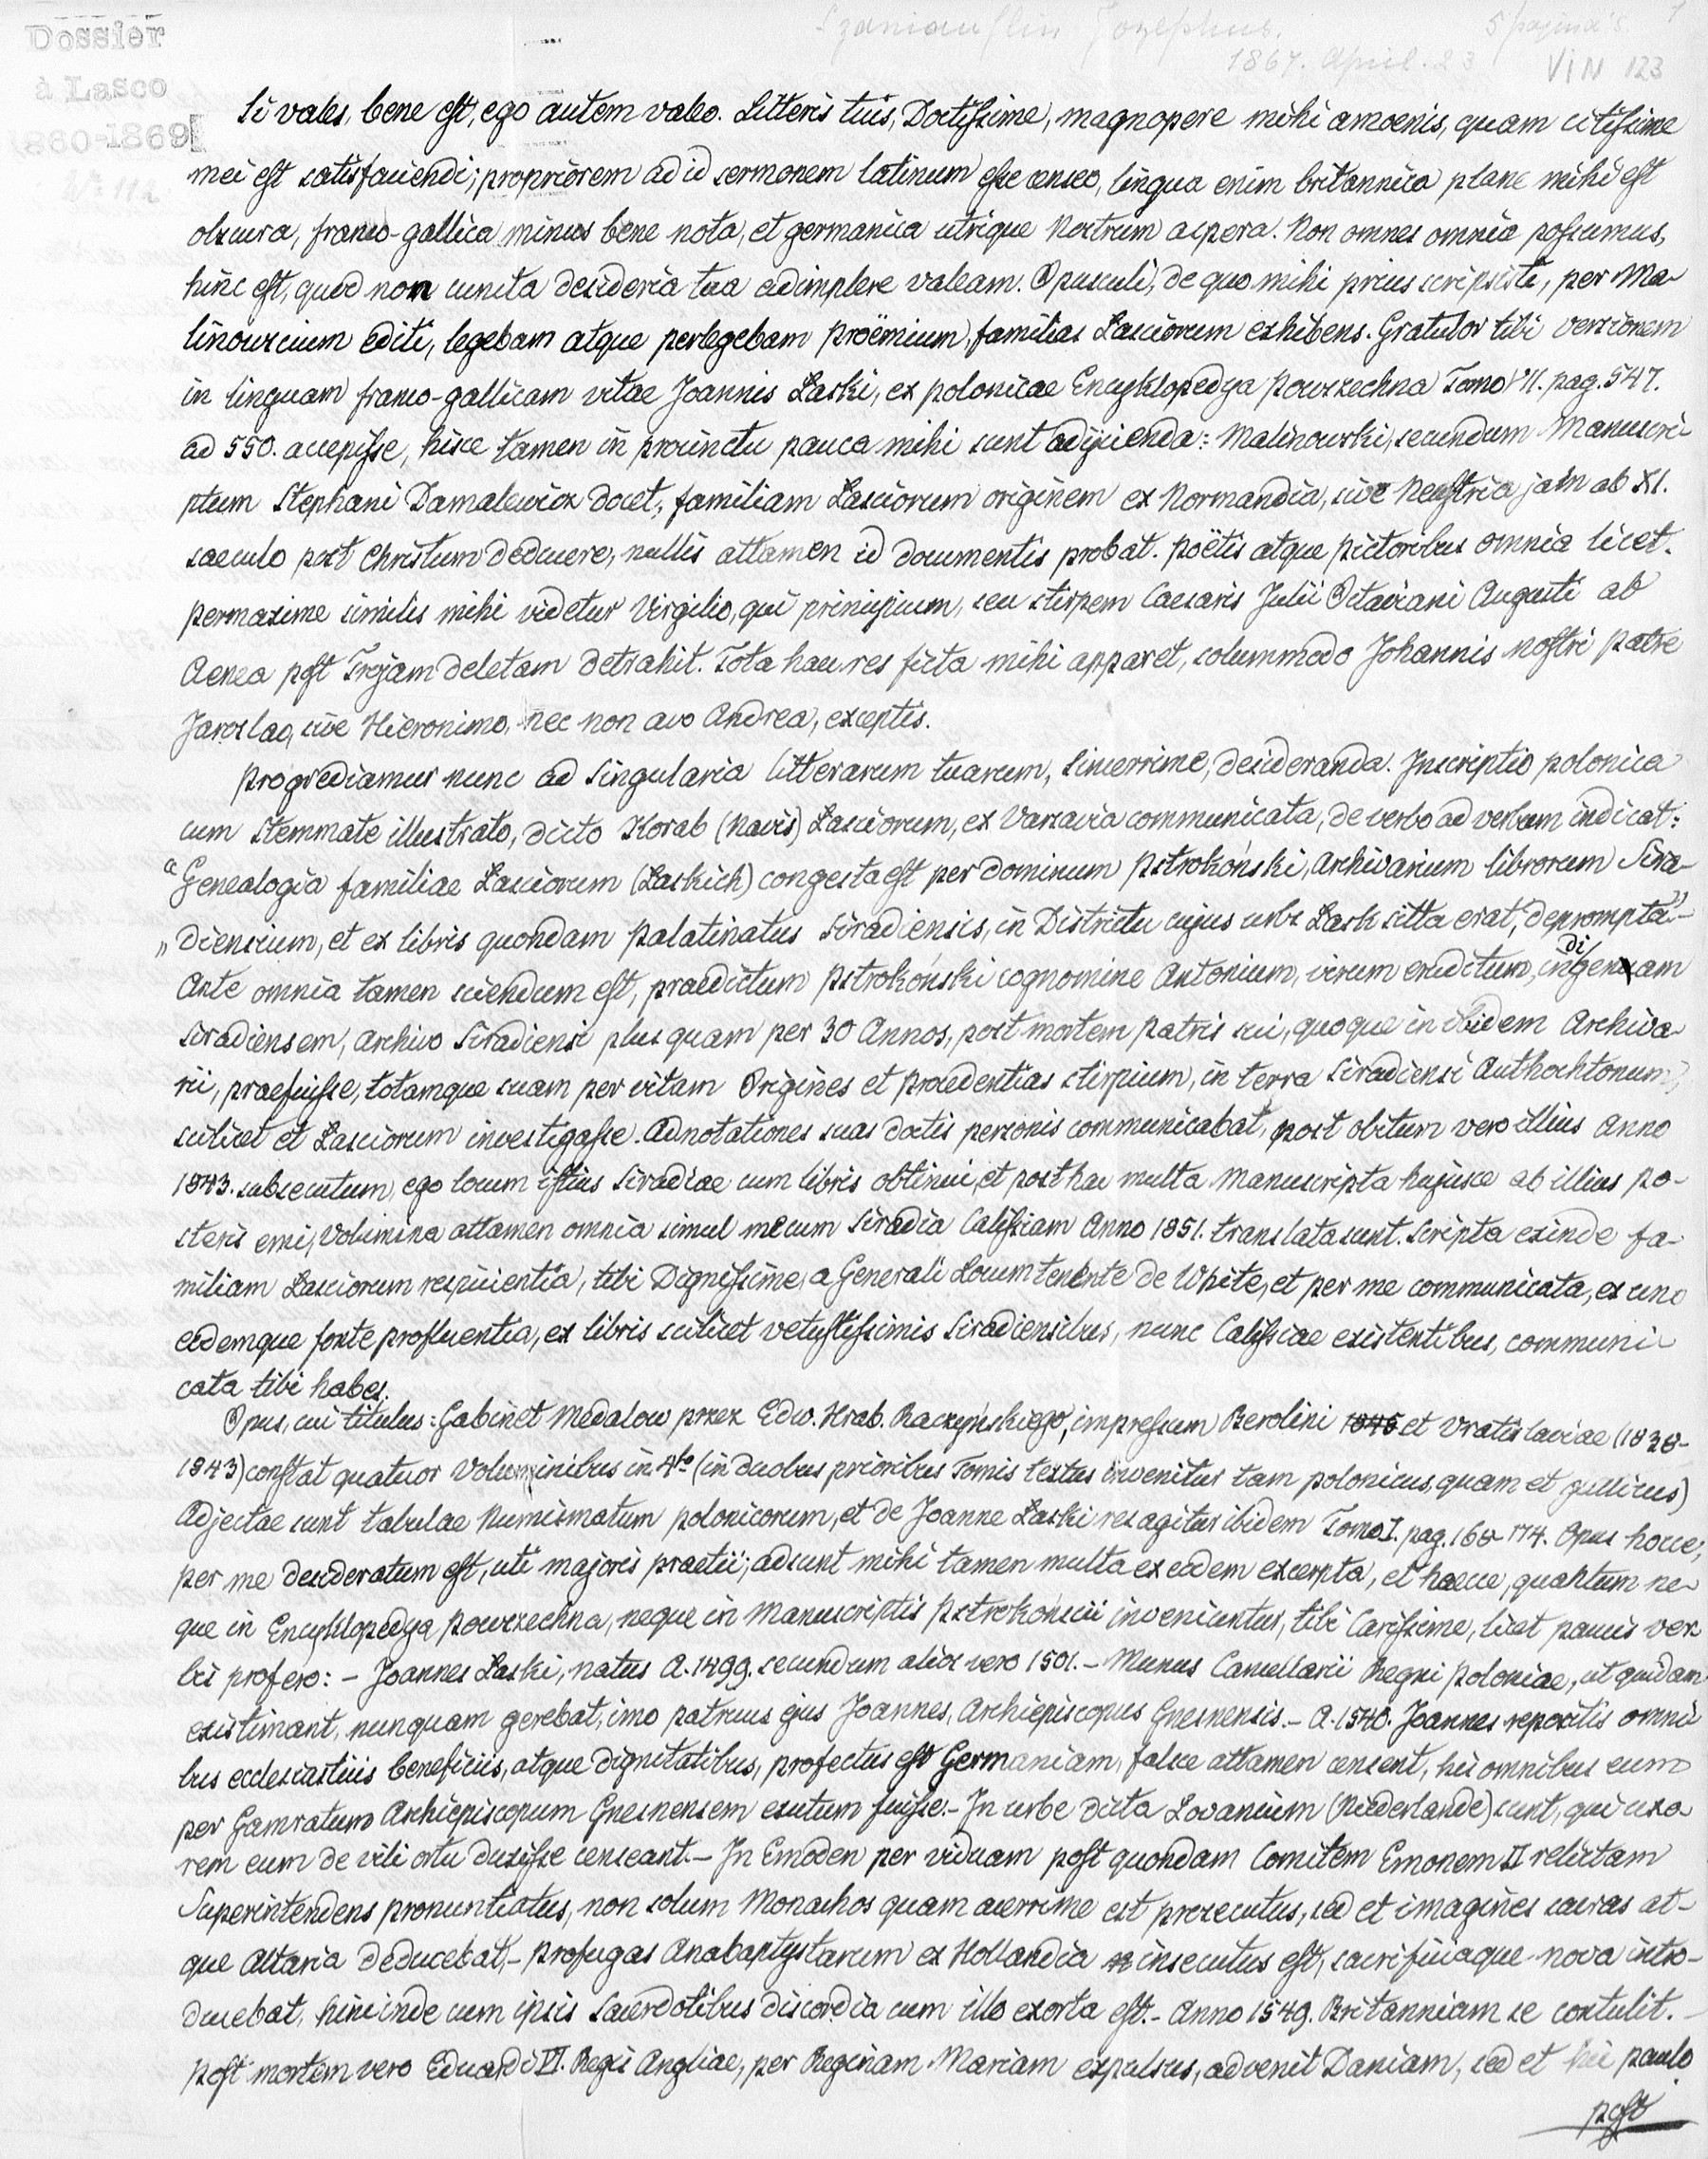 Dossier
à Lasco
1860-1869
Josephus.
5 pagina's
1867. April. 23
VIN 123
Si vales, bene est, ego autem valeo. Litteris tuis, Doctissime, magnopere mihi amoenis, quam citissime
mei est satisfaciendi; propriorem ad id sermonem latinum esse censeo, lingua enim britannica plane mihi est
obscura, franco-gallica minus bene nota, et germanica utrique Nostrum aspera. Non omnes omnia possumus,
hinc est, quod non cuncta desideria tua adimplere valeam. Opusculi, de quo mihi prius scripsisti, per Ma-
linowscium editi, legebam atque perlegebam proëmium, familias Lasciorum exhibens. Gratulor tibi versionem
in linguam franco-gallicam vitae Joannis Łaski, ex polonicae Encyklopedya Powszechna Tomo VII. pag. 547.
ad 550. accepisse, hisce tamen in procinctu pauca mihi sunt adjicienda: Malinowski, secundum Manuscri-
ptum Stephani Damalewicz docet, familiam Lasciorum originem ex Normandia, sive Neustria jam ab XI.
saeculo post Christum deducere, nullis attamen id documentis probat. Poëtis atque pictoribus omnia licet.
permaxime similis mihi videtur Virgilio, qui principium, seu stirpem Caesaris Julii Octaviani Augusti ab
Aenea post Trojam deletam detrahit. Tota haec res ficta mihi apparet, solummodo Johannis nostri patre
Jaroslao, sive Hieronimo, nec non avo Andrea, exceptis.
Progrediamur nunc ad singularia litterarum tuarum, Sincerrime, desideranda. Inscriptio polonica
cum Stemmate illustrato, dicto Korab (Navis) Lasciorum, ex Varsavia communicata, de verbo ad verbum indicat:
"Genealogia familiae Lasciorum (Łaskich) congesta est per dominum Pstrokoński, Archivarium librorum Sira-
„diensium, et ex libris quondam Palatinatus Siradiensis, in Districtu cujus urbs Łask sitta erat, deprompta"-
Ante omnia tamen sciendum est, praedictum Pstrokoński cognomine Antonium, virum eruditum, indigenam
Siradiensem, Archivo Siradiensi plus quam per 30 Annos, post mortem patris sui, quoque in ibidem Archiva-
rii, praefuisse, totamque suam per vitam Origines et procedentias stirpium, in terra Siradiensi Authochtonum,
scilicet et Lasciorum investigasse. Adnotationes suas doctis personis communicabat, post obitum vero illius Anno
1843. subsecutum, ego locum istius Siradiae cum libris obtinui, et post hac multa Manuscripta hujusce ab illius po-
steris emi, Volumina attamen omnia simul mecum Siradia Calissiam Anno 1851. translata sunt. Scripta exinde fa-
miliam Lasciorum respicientia, tibi Dignissime, a Generali Locumtenente de White, et per me communicata, ex uno
eodemque fonte profluentia, ex libris scilicet vetustissimis Siradiensibus, nunc Calissiae existentibus, communi-
cata tibi habes.
Opus, cui titulus: Gabinet Medalow przez Edw. Hrab. Raczyńskiego, impressum Berolini 1845 et Vratislaviae (1838-
1843) constat quatuor Voluminibus in 4to (in duobus prioribus Tomis textus invenitur tam polonicus, quam et gallicus)
Adjectae sunt tabulae Numismatum polonicorum, et de Joanne Łaski res agitur ibidem Tomo I. pag. 168-174. Opus hocce,
per me desideratum est, uti majoris praetii; adsunt mihi tamen multa ex eodem excerpta, et haecce, quantum ne-
que in Encyklopedya powszechna, neque in Manuscriptis Pstrokońscii inveniuntur, tibi Carissime, licet paucis ver-
bis profero: - Joannes Łaski, natus A. 1499. secundum alios vero 1501. - Munus Cancellarii Regni Poloniae, ut quidam
existimant, nunquam gerebat, imo patruus ejus Joannes, Archiepiscopus Gnesnensis. - A. 1540. Joannes repositis omni-
bus ecclesiasticis beneficiis, atque dignitatibus, profectus est Germaniam, falso attamen censent, his omnibus eum
per Gamratum Archiepiscopum Gnesnensem exutum fuisse. - In urbe dicta Lovanium (Niederlande) sunt, qui uxo-
rem eum de vili ortu duxisse censeant. - In Emden per viduam post quondam Comitem Emonem II relictam
Superintendens pronuntiatus, non solum Monachos quam acerrime est prosecutus, sed et imagines sacras at-
que Altaria deducebat, - profugas Anabaptystarum ex Hollandia insecutus est, sacrificiaque nova intro-
ducebat, hincinde cum ipsis Sacerdotibus discordia cum illo exorta est. - Anno 1549. Britanniam se contulit. -
Post mortem vero Eduardi VI. Regis Angliae, per Reginam Mariam expulsus, advenit Daniam, sed et hic paulo
post